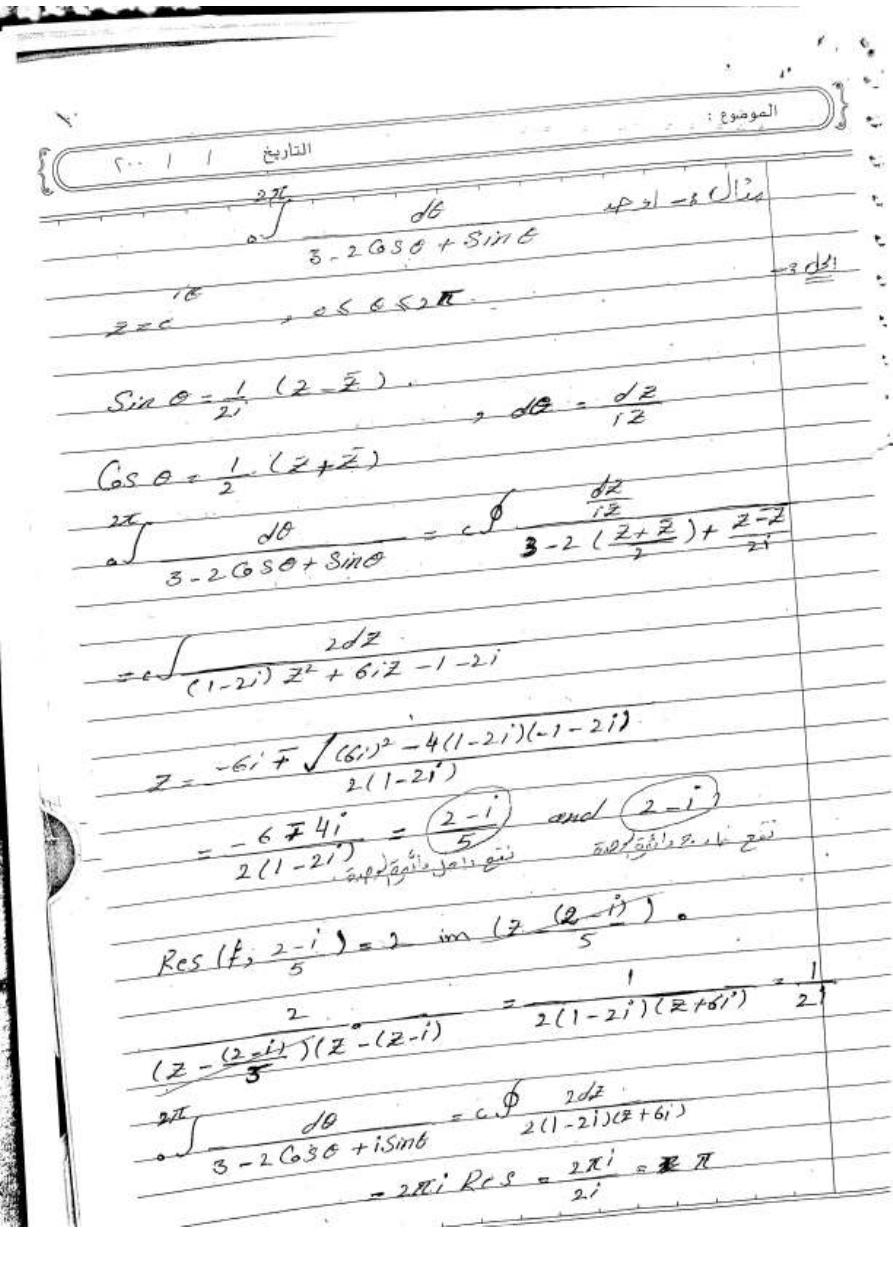 الموضوع :
التاريخ / / ٢٠٠
مثال :- اوجد ₀∫^{2π} dθ / (3 - 2 Cos θ + Sin θ)
الحل :-
z = e^{iθ} , 0 ≤ θ ≤ 2π.
Sin θ = 1/2i (z - z̄) . , dθ = dz/iz
Cos θ = 1/2 (z + z̄)
₀∫^{2π} dθ / (3 - 2 Cos θ + Sin θ) = c∮ (dz/iz) / (3 - 2 ((z + z̄)/2) + (z - z̄)/2i)
= c∫ 2dz / ((1-2i) z² + 6iz - 1 - 2i)
z = (-6i ∓ √((6i)² - 4(1-2i)(-1-2i))) / 2(1-2i)
= (-6 ∓ 4i) / 2(1-2i) = (2-i)/5 and 2-i
تقع داخل دائرة الوحدة. تقع خارج دائرة الوحدة
Res (f, (2-i)/5) = lim (z - (2-i)/5) .
2 / ((z - (2-i)/5)(z - (z-i)) = 1 / (2(1-2i)(z+6i)) = 1/2i
₀∫^{2π} dθ / (3 - 2 Cos θ + i Sin θ) = c∮ 2dz / (2(1-2i)(z+6i))
= 2πi Res = 2πi/2i = π